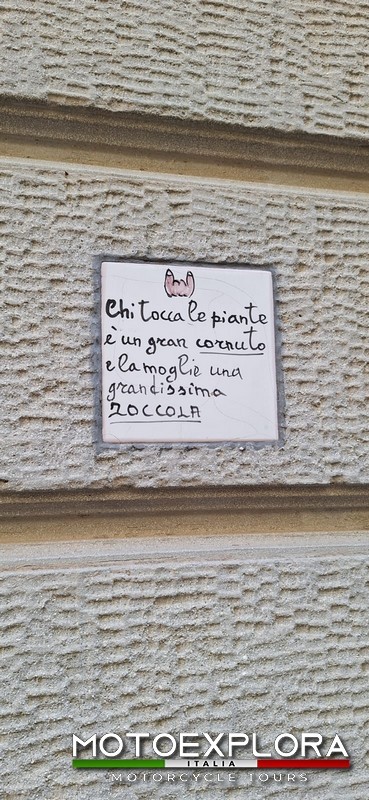 Chi tocca le piante
è un gran cornuto
e la moglie una
grandissima
ZOCCOLA
MOTOEXPLORA
ITALIA
MOTORCYCLE TOURS